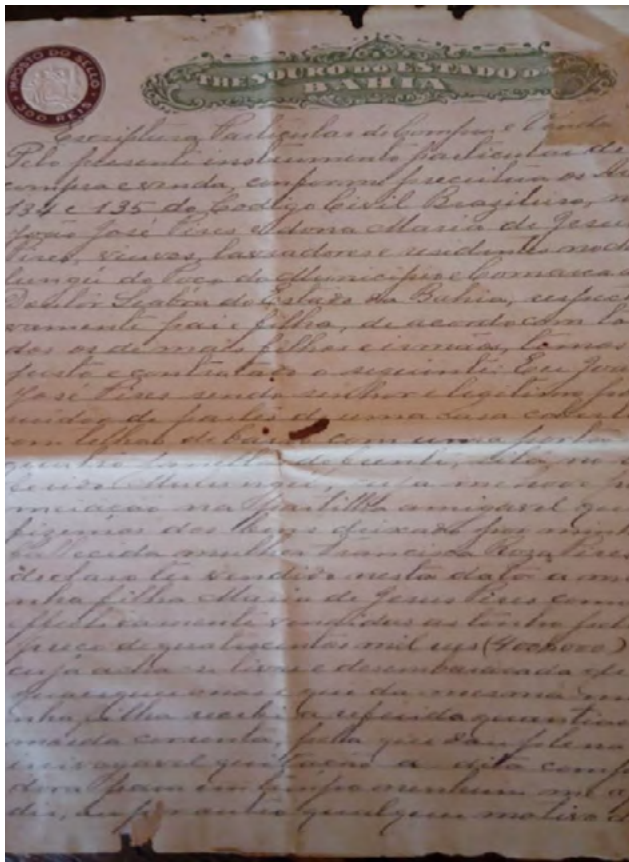 IMPOSTO DO SELLO
300 REIS
THESOURO DO ESTADO DA
BAHIA
Escriptura Particular de Compra e Venda
Pelo presente instrumento particular de
compra e venda, conforme preceitua os
134 e 135 do Codigo Civil Brazileiro, n
João José Pires e dona Maria de Jesus
Pires, viuvos, lavradores e residentes no
lungú do Poço do Municipio e Comarca
Doutor Seabra do Estado da Bahia, respecti
vamente pai e filha, de acordo com to
dos os demais filhos e irmãos, temos
justo e contratado o seguinte: Eu João
José Pires sendo senhor e legitimo
de partes de uma casa coberta
com telhas de barro com uma porta
quatro janellas de frente, sita no
na partilha amigavel que
fizemos dos bens deixados por minha
fallecida mulher Francisca Roza Pires
declaro ter vendido nesta data a mi
nha filha Maria de Jesus Pires como
effectivamente vendidas as tenho pelo
preço de quatrocentos mil reis (400\$000)
cuja casa livre e desembaraçada de
quaesquer onus e que da mesma mi
nha filha recebi a referida quantia
moeda corrente, pelo que dou plena
irrevogavel quitação a dita compra
dora para em tempo nenhum
qualquer motivo